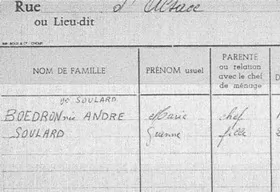 Rue d'Alsace
ou Lieu-dit
NOM DE FAMILLE
PRÉNOM usuel
PARENTÉ
ou relation
avec le chef
de ménage
SOULARD
BOEDRON née ANDRE Marie chef
SOULARD fille